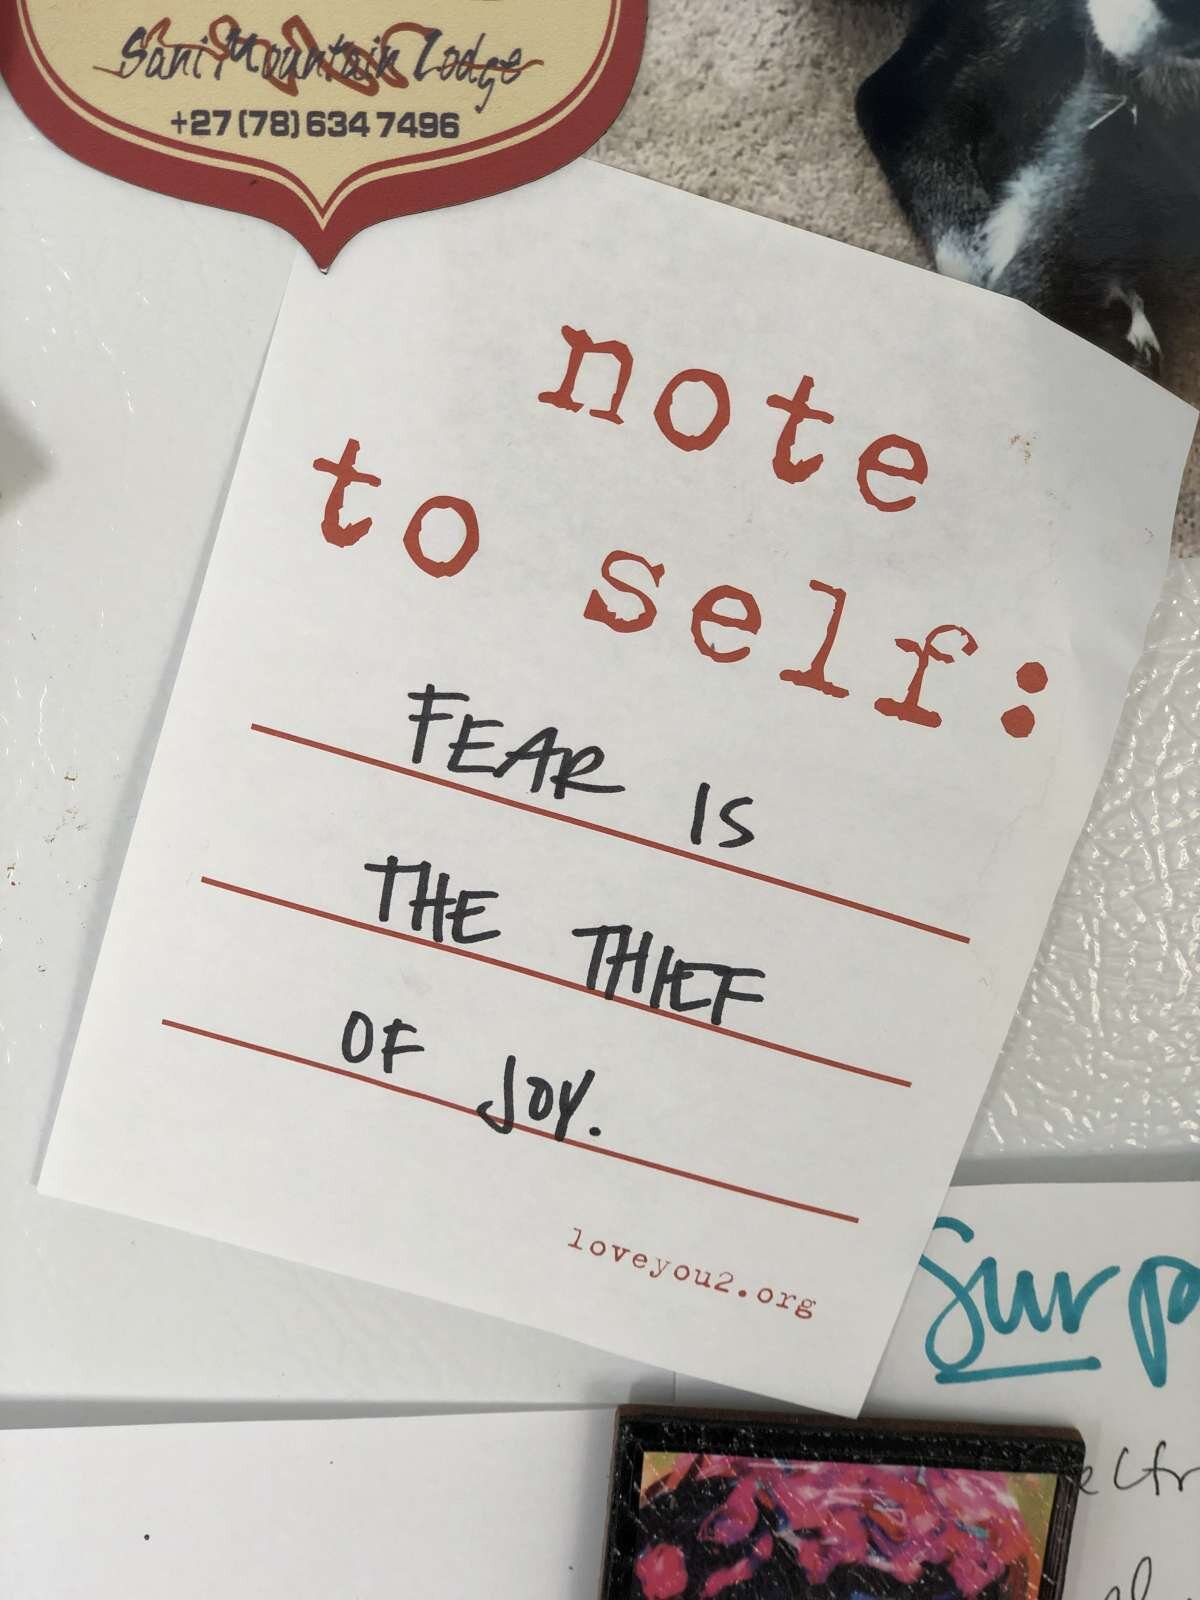 Sani Mountain Lodge
+27 (78) 634 7496
note
to self:
FEAR IS
THE THIEF
OF JOY.
loveyou2.org
Surp